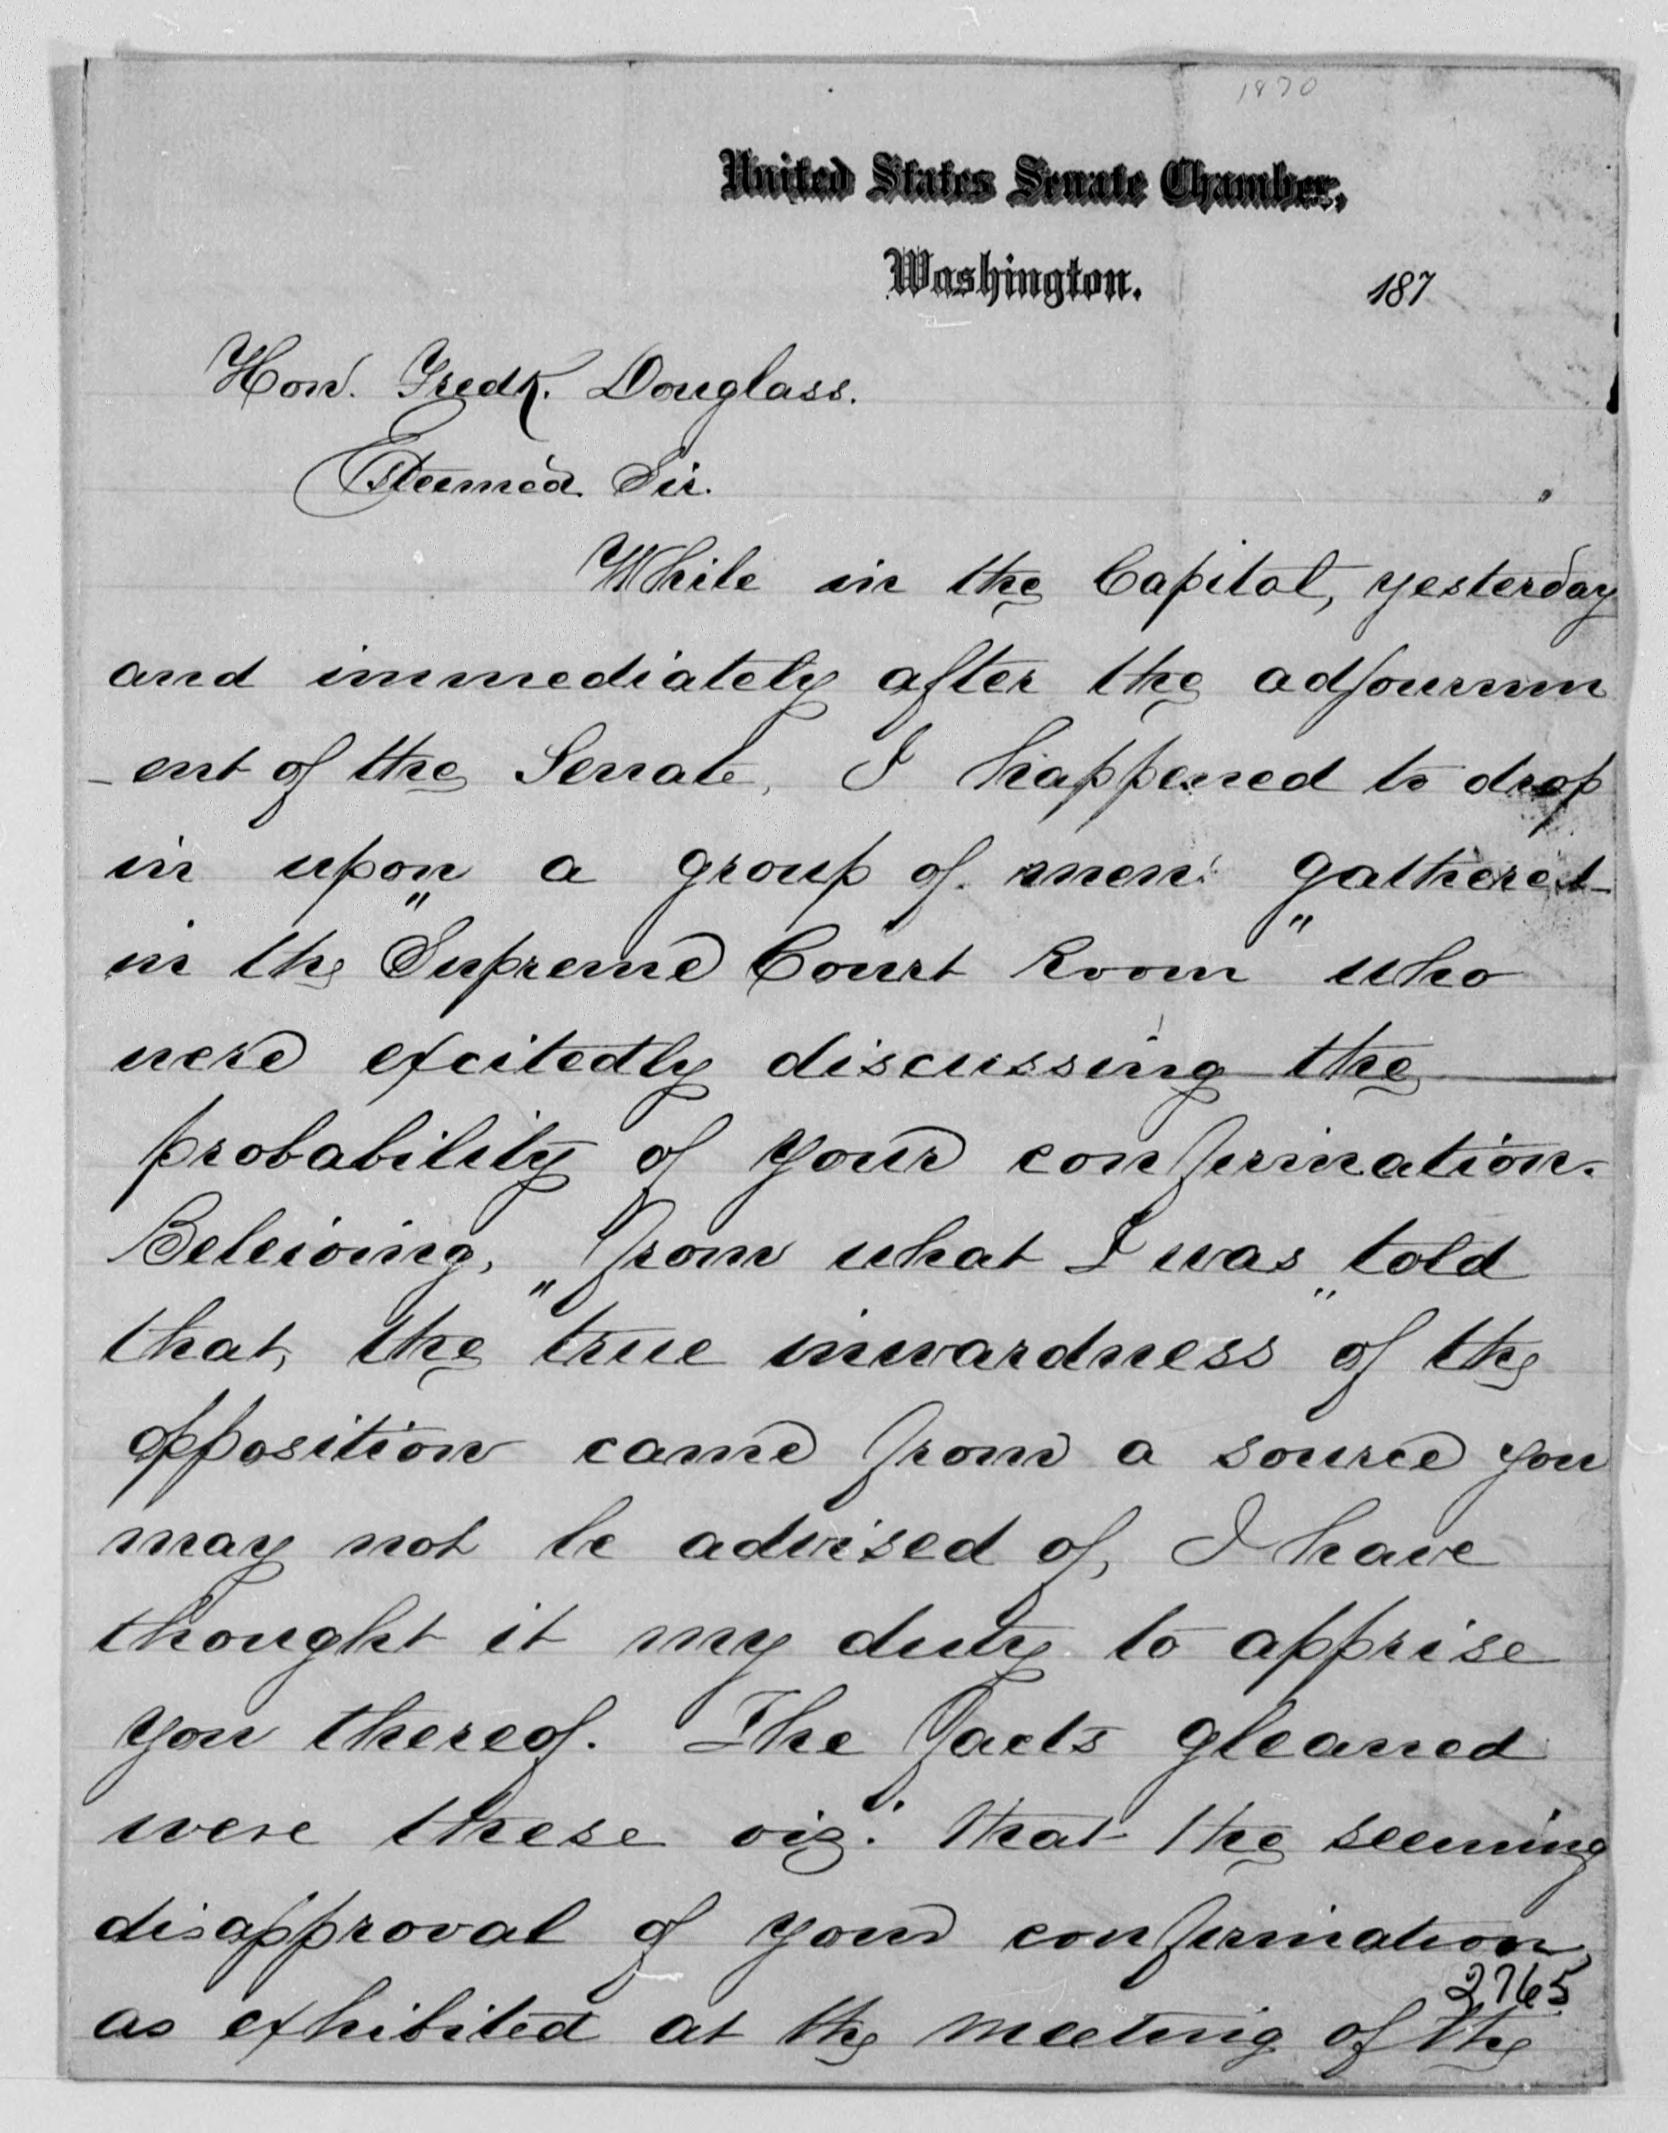 1870
United States Senate Chamber,
Washington. 187
Hon. Fredk. Douglass.
Esteemed Sir.
While in the Capitol, yesterday
and immediately after the adjournm
-ent of the Senate, I happened to drop
in upon a group of men gathered
in the "Supreme Court Room" who
were excitedly discussing the
probability of your confirmation.
Beleiving, from what I was told
that, the "true inwardness" of the
opposition came from a source you
may not be advised of, I have
thought it my duty to apprise
you thereof. The facts gleaned
were these viz: that the seeming
disapproval of your confirmation,
2765
as exhibited at the meeting of the